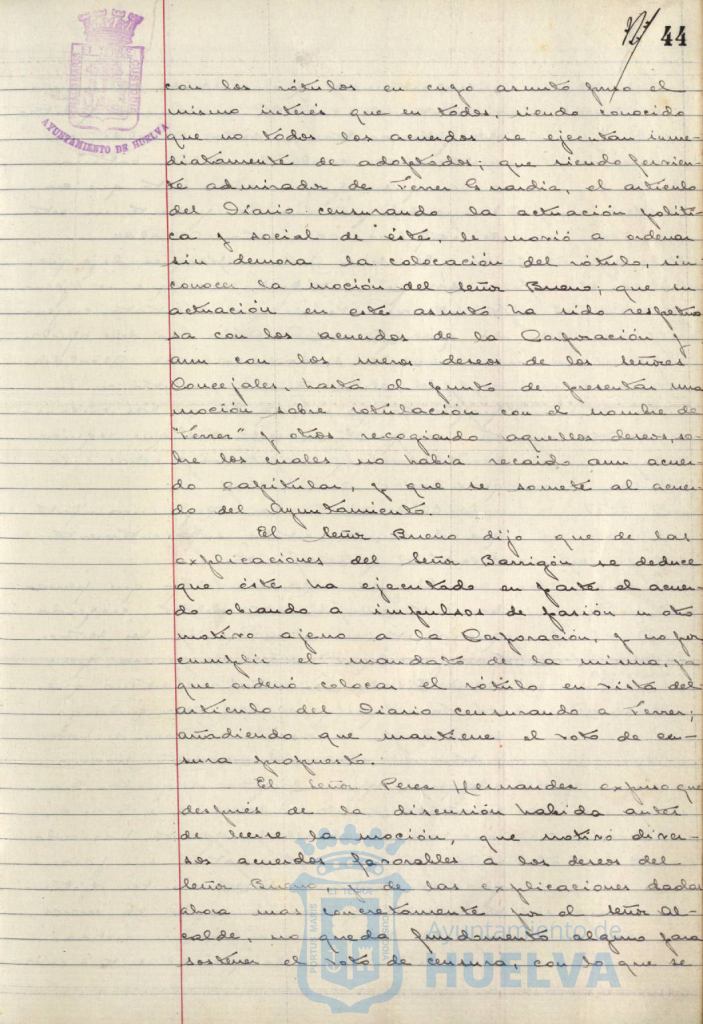 44
AYUNTAMIENTO DE HUELVA
con los rótulos en cuyo asunto puso el
mismo interés que en todos, siendo conocido
que no todos los acuerdos se ejecutan inme-
diatamente de adoptados; que siendo fervien-
te admirador de Ferrer Guardia, el artículo
del Diario censurando la actuación políti-
ca y social de éste, le movió a ordenar
sin demora la colocación del rótulo, sin
conocer la moción del Señor Bueno; que su
actuación en este asunto ha sido respetuo
sa con los acuerdos de la Corporación y
aun con los meros deseos de los Señores
Concejales, hasta el punto de presentar una
moción sobre rotulación con el nombre de
"Ferrer" y otros recogiendo aquellos deseos, so-
bre los cuales no había recaido aun acuer-
do capitular, y que se somete al acuer-
do del Ayuntamiento.
El Señor Bueno dijo que de las
explicaciones del Señor Barrigón se deduce
que éste ha ejecutado en parte el acuer-
do obrando a impulsos de pasión u otro
motivo ajeno a la Corporación, y no por
cumplir el mandato de la misma, ya
que ordenó colocar el rótulo en vista del
artículo del Diario censurando a Ferrer;
añadiendo que mantiene el voto de cen-
sura propuesto.
El Señor Perez Hernandez expuso que
después de la discusión habida antes
de leerse la moción, que motivó diver-
sos acuerdos favorables a los deseos del
Señor Bueno, y de las explicaciones dadas
ahora mas concretamente por el Señor Al-
calde, no queda fundamento alguno para
sostener el voto de censura, con lo que se
Ayuntamiento de
HUELVA
PORTUS MARIS
ET TERRAE
CUSTODIA